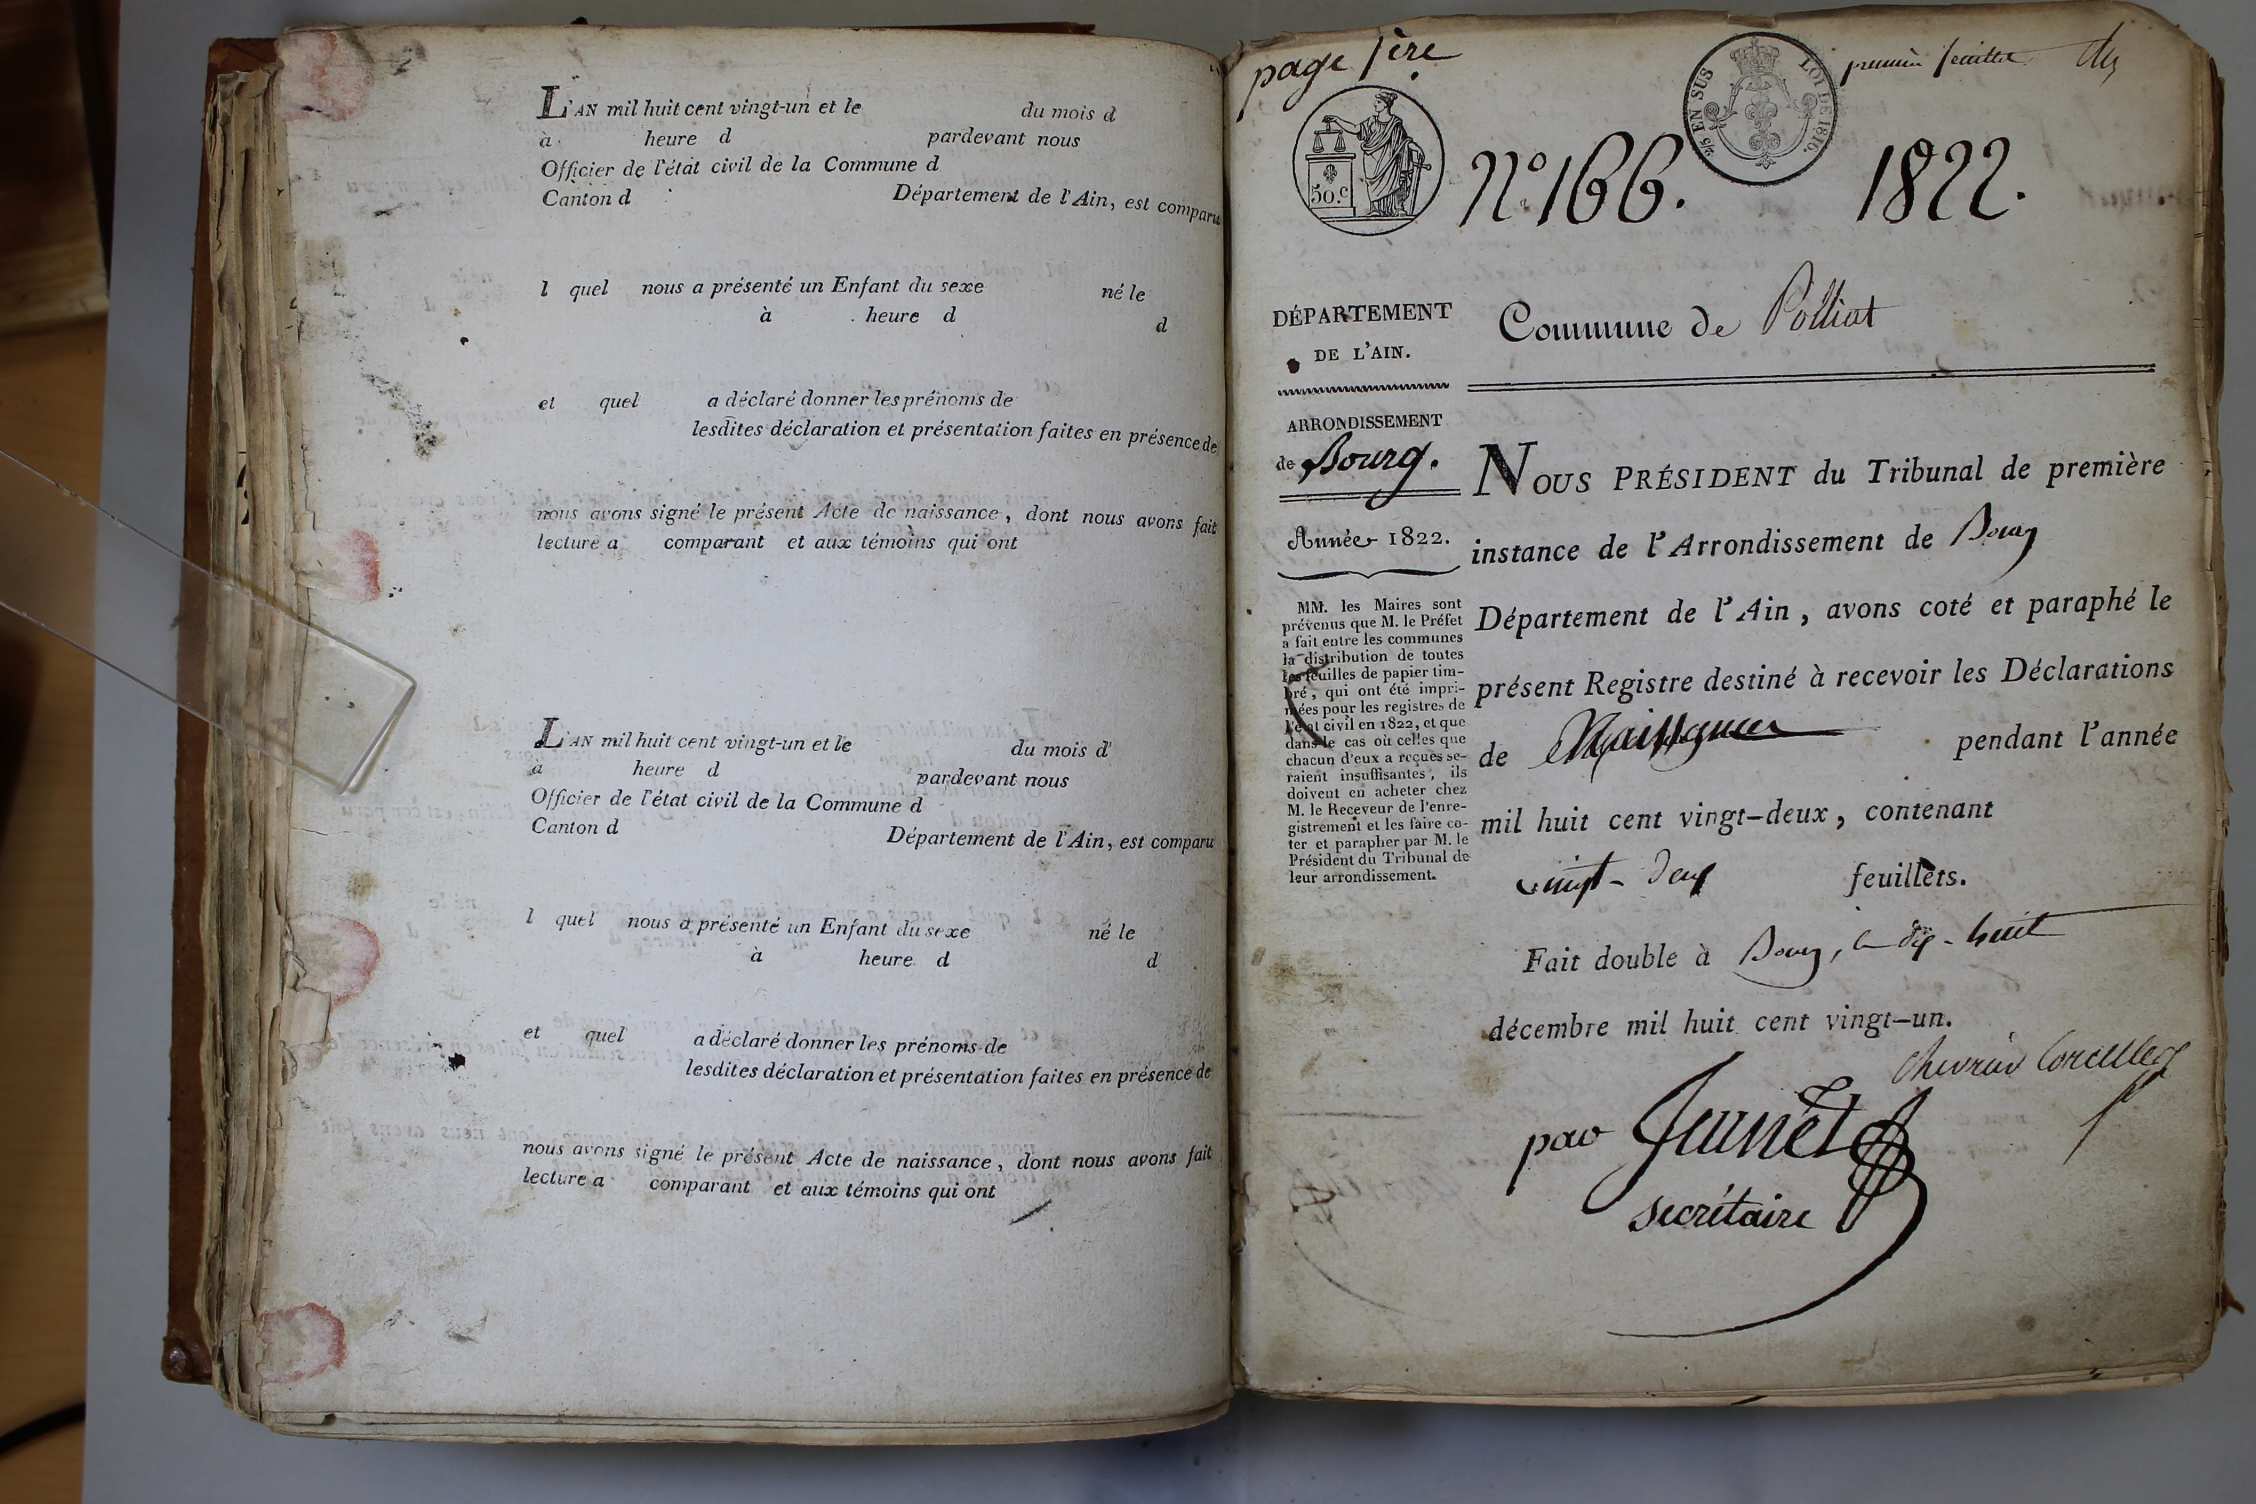 L'AN mil huit cent vingt-un et le du mois d
à heure d pardevant nous
Officier de l'état civil de la Commune d
Canton d Département de l'Ain, est comparu
l quel nous a présenté un Enfant du sexe né le
à heure d d
et quel a déclaré donner les prénoms de
lesdites déclaration et présentation faites en présence de
nous avons signé le présent Acte de naissance, dont nous avons fait
lecture a comparant et aux témoins qui ont
L'AN mil huit cent vingt-un et le du mois d
à heure d pardevant nous
Officier de l'état civil de la Commune d
Canton d Département de l'Ain, est comparu
l quel nous a présenté un Enfant du sexe né le
à heure d d
et quel a déclaré donner les prénoms de
lesdites déclaration et présentation faites en présence de
nous avons signé le présent Acte de naissance, dont nous avons fait
lecture a comparant et aux témoins qui ont
page 1ère
premier feuillet
25 EN SUS LOI DE 1816.
50.c
N.o 166. 1822.
DÉPARTEMENT
DE L'AIN.
Commune de Polliat
ARRONDISSEMENT
de Bourg.
Année 1822.
MM. les Maires sont
prévenus que M. le Préfet
a fait entre les communes
la distribution de toutes
les feuilles de papier tim-
bré, qui ont été impri-
mées pour les registres de
l'état civil en 1822, et que
dans le cas où celles que
chacun d'eux a reçues se-
raient insuffisantes, ils
doivent en acheter chez
M. le Receveur de l'enre-
gistrement et les faire co-
ter et parapher par M. le
Président du Tribunal de
leur arrondissement.
NOUS PRÉSIDENT du Tribunal de première
instance de l'Arrondissement de Bourg
Département de l'Ain, avons coté et paraphé le
présent Registre destiné à recevoir les Déclarations
de Naissances pendant l'année
mil huit cent vingt-deux, contenant
vingt-deux feuillets.
Fait double à Bourg, le dix-huit
décembre mil huit cent vingt-un.
Chevrier Corcelles
par
secrétaire